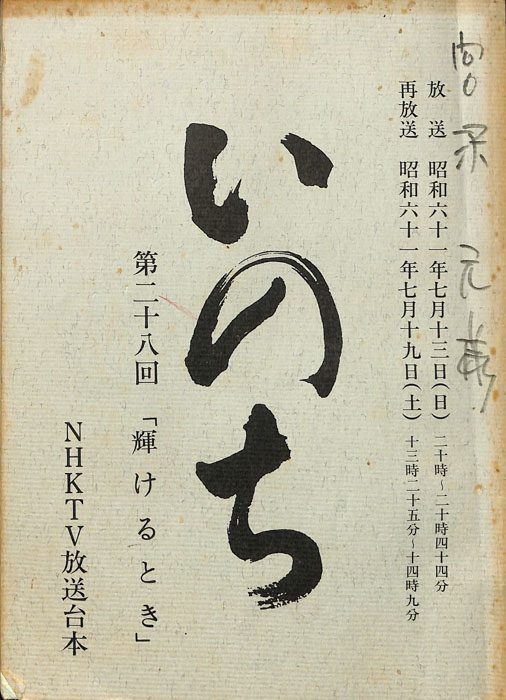 放送 昭和六十一年七月十三日(日)二十時~二十時四十四分
再放送 昭和六十一年七月十九日(土)十三時二十五分~十四時九分
いのち
第二十八回 「輝けるとき」
NHKTV放送台本